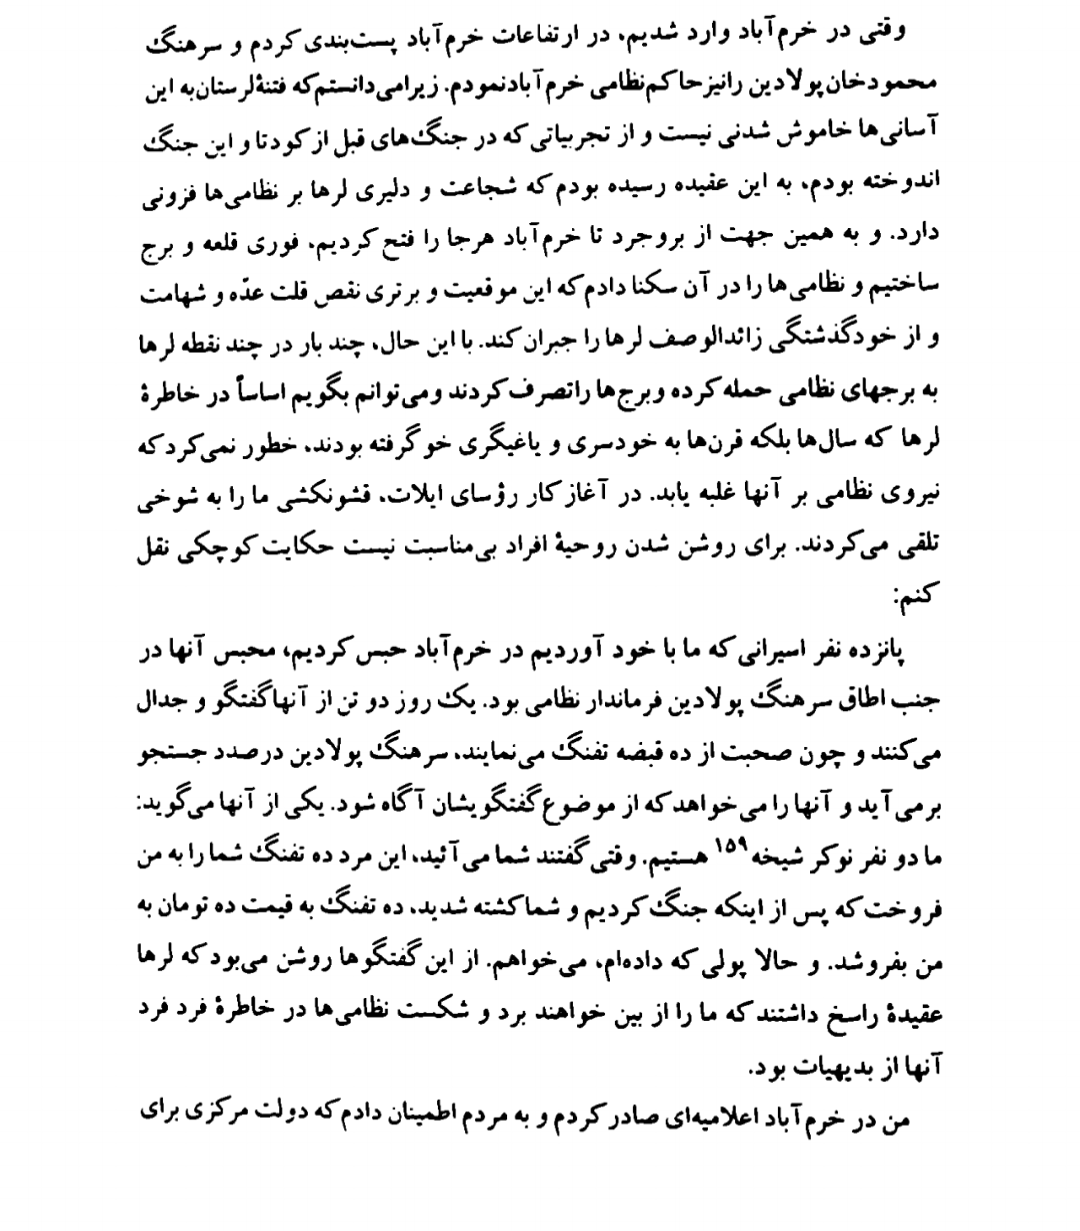 وقتی در خرم‌آباد وارد شدیم، در ارتفاعات خرم‌آباد پست‌بندی کردم و سرهنگ
محمودخان پولادین را نیز حاکم نظامی خرم‌آباد نمودم. زیرا می‌دانستم که فتنهٔ لرستان به این
آسانی‌ها خاموش شدنی نیست و از تجربیاتی که در جنگ‌های قبل از کودتا و این جنگ
اندوخته بودم، به این عقیده رسیده بودم که شجاعت و دلیری لرها بر نظامی‌ها فزونی
دارد. و به همین جهت از بروجرد تا خرم‌آباد هرجا را فتح کردیم، فوری قلعه و برج
ساختیم و نظامی‌ها را در آن سکنا دادم که این موقعیت و برتری نقص قلت عدّه و شهامت
و از خودگذشتگی زائدالوصف لرها را جبران کند. با این حال، چند بار در چند نقطه لرها
به برجهای نظامی حمله کرده و برج‌ها را تصرف کردند و می‌توانم بگویم اساساً در خاطرهٔ
لرها که سال‌ها بلکه قرن‌ها به خودسری و یاغیگری خو گرفته بودند، خطور نمی‌کرد که
نیروی نظامی بر آنها غلبه یابد. در آغاز کار رؤسای ایلات، قشونکشی ما را به شوخی
تلقی می‌کردند. برای روشن شدن روحیهٔ افراد بی‌مناسبت نیست حکایت کوچکی نقل
کنم:
پانزده نفر اسیرانی که ما با خود آوردیم در خرم‌آباد حبس کردیم، محبس آنها در
جنب اطاق سرهنگ پولادین فرماندار نظامی بود. یک روز دو تن از آنها گفتگو و جدال
می‌کنند و چون صحبت از ده قبضه تفنگ می‌نمایند، سرهنگ پولادین درصدد جستجو
برمی‌آید و آنها را می‌خواهد که از موضوع گفتگویشان آگاه شود. یکی از آنها می‌گوید:
ما دو نفر نوکر شیخه۱۵۹ هستیم. وقتی گفتند شما می‌آئید، این مرد ده تفنگ شما را به من
فروخت که پس از اینکه جنگ کردیم و شما کشته شدید، ده تفنگ به قیمت ده تومان به
من بفروشد. و حالا پولی که داده‌ام، می‌خواهم. از این گفتگوها روشن می‌بود که لرها
عقیدهٔ راسخ داشتند که ما را از بین خواهند برد و شکست نظامی‌ها در خاطرهٔ فرد فرد
آنها از بدیهیات بود.
من در خرم‌آباد اعلامیه‌ای صادر کردم و به مردم اطمینان دادم که دولت مرکزی برای